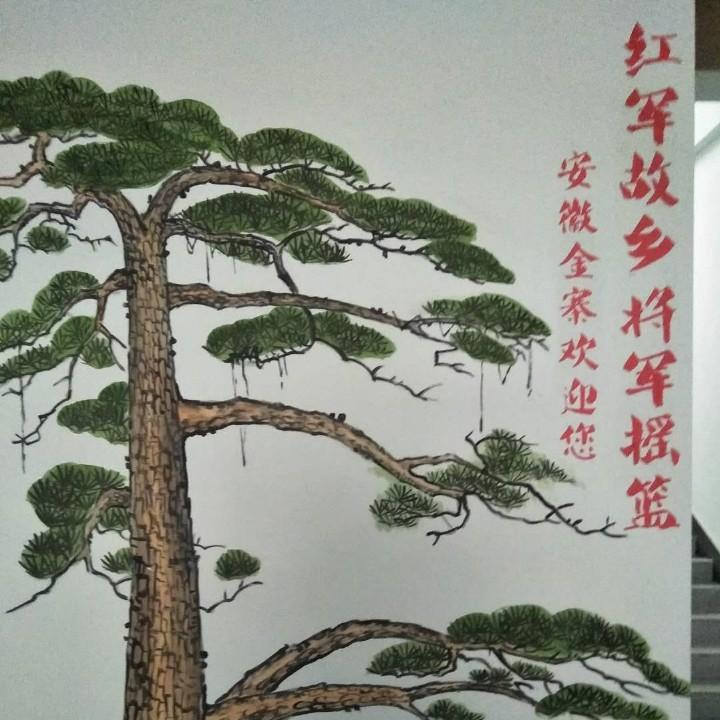 红军故乡 将军摇篮
安徽金寨欢迎您